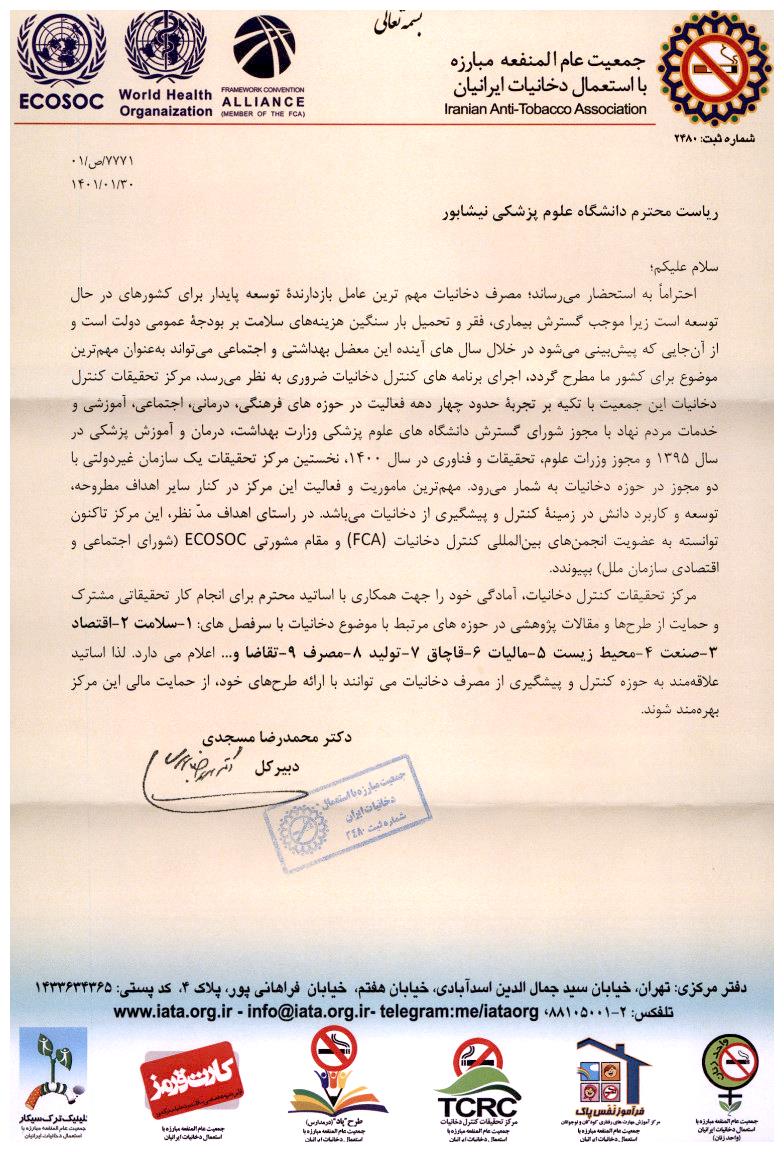 بسمه تعالی
ECOSOC
World Health
Organaization
FRAMEWORK CONVENTION
ALLIANCE
(MEMBER OF THE FCA)
جمعیت عام المنفعه مبارزه
با استعمال دخانیات ایرانیان
Iranian Anti-Tobacco Association
شماره ثبت: ۲۴۸۰
۰۱/ص/۷۷۷۱
۱۴۰۱/۰۱/۳۰
ریاست محترم دانشگاه علوم پزشکی نیشابور
سلام علیکم؛
احتراماً به استحضار می‌رساند؛ مصرف دخانیات مهم ترین عامل بازدارندهٔ توسعه پایدار برای کشورهای در حال
توسعه است زیرا موجب گسترش بیماری، فقر و تحمیل بار سنگین هزینه‌های سلامت بر بودجهٔ عمومی دولت است و
از آن‌جایی که پیش‌بینی می‌شود در خلال سال های آینده این معضل بهداشتی و اجتماعی می‌تواند به‌عنوان مهم‌ترین
موضوع برای کشور ما مطرح گردد، اجرای برنامه های کنترل دخانیات ضروری به نظر می‌رسد، مرکز تحقیقات کنترل
دخانیات این جمعیت با تکیه بر تجربهٔ حدود چهار دهه فعالیت در حوزه های فرهنگی، درمانی، اجتماعی، آموزشی و
خدمات مردم نهاد با مجوز شورای گسترش دانشگاه های علوم پزشکی وزارت بهداشت، درمان و آموزش پزشکی در
سال ۱۳۹۵ و مجوز وزرات علوم، تحقیقات و فناوری در سال ۱۴۰۰، نخستین مرکز تحقیقات یک سازمان غیردولتی با
دو مجوز در حوزه دخانیات به شمار می‌رود. مهم‌ترین ماموریت و فعالیت این مرکز در کنار سایر اهداف مطروحه،
توسعه و کاربرد دانش در زمینهٔ کنترل و پیشگیری از دخانیات می‌باشد. در راستای اهداف مدّ نظر، این مرکز تاکنون
توانسته به عضویت انجمن‌های بین‌المللی کنترل دخانیات (FCA) و مقام مشورتی ECOSOC (شورای اجتماعی و
اقتصادی سازمان ملل) بپیوندد.
مرکز تحقیقات کنترل دخانیات، آمادگی خود را جهت همکاری با اساتید محترم برای انجام کار تحقیقاتی مشترک
و حمایت از طرح‌ها و مقالات پژوهشی در حوزه های مرتبط با موضوع دخانیات با سرفصل های: ۱-سلامت ۲-اقتصاد
۳-صنعت ۴-محیط زیست ۵-مالیات ۶-قاچاق ۷-تولید ۸-مصرف ۹-تقاضا و... اعلام می دارد. لذا اساتید
علاقه‌مند به حوزه کنترل و پیشگیری از مصرف دخانیات می توانند با ارائه طرح‌های خود، از حمایت مالی این مرکز
بهره‌مند شوند.
دکتر محمدرضا مسجدی
دبیرکل
جمعیت مبارزه با استعمال
دخانیات ایران
شماره ثبت ۲۴۸۰
دفتر مرکزی: تهران، خیابان سید جمال الدین اسدآبادی، خیابان هفتم، خیابان فراهانی پور، پلاک ۴، کد پستی: ۱۴۳۳۶۳۴۳۶۵
تلفکس: ۲-۸۸۱۰۵۰۰۱، www.iata.org.ir - info@iata.org.ir- telegram:me/iataorg
واحد زنان
جمعیت عام المنفعه مبارزه با
استعمال دخانیات ایرانیان
(واحد زنان)
فرآموز نفس پاک
مرکز آموزش مهارت های رفتاری کودکان و نوجوانان
جمعیت عام المنفعه مبارزه با
استعمال دخانیات ایرانیان
TCRC
مرکز تحقیقات کنترل دخانیات
جمعیت عام المنفعه مبارزه با
استعمال دخانیات ایرانیان
طرح "پاد" (در مدارس)
جمعیت عام المنفعه مبارزه با
استعمال دخانیات ایرانیان
کارت قرمز
جمعیت عام المنفعه مبارزه با
استعمال دخانیات ایرانیان
کلینیک ترک سیگار
جمعیت عام المنفعه مبارزه با
استعمال دخانیات ایرانیان